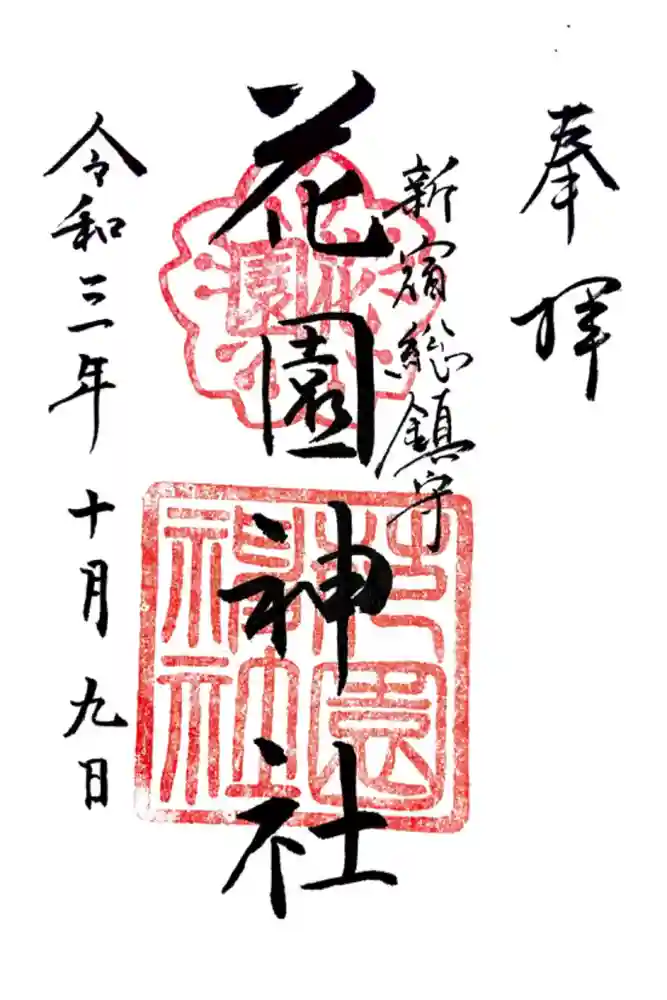 奉拝
新宿総鎮守
花園神社
令和三年十月九日
花園
花園神社